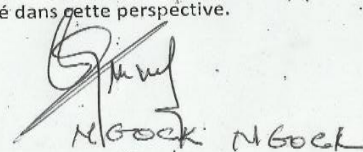 é dans cette perspective.
NGOCK NGOCK